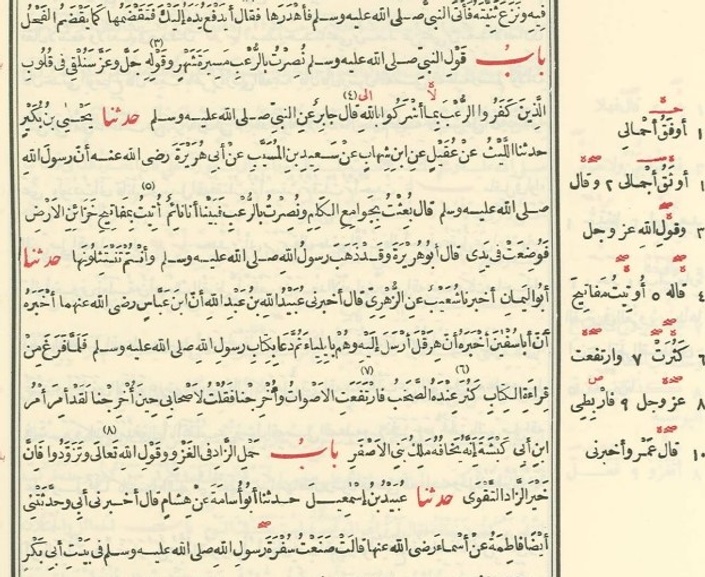 فيه ونزع ثنيته فأتى النبي صلى الله عليه وسلم فأهدرها فقال أيدفع يده إليك فتقضمها كما يقضم الفحل
باب قول النبي صلى الله عليه وسلم نصرت بالرعب مسيرة شهر (٣) وقوله جل وعز سنلقي في قلوب
الذين كفروا الرعب بما أشركوا بالله (٤) قال جابر عن النبي صلى الله عليه وسلم حدثنا يحيى بن بكير
حدثنا الليث عن عقيل عن ابن شهاب عن سعيد بن المسيب عن أبي هريرة رضي الله عنه أن رسول الله
صلى الله عليه وسلم قال بعثت بجوامع الكلم ونصرت بالرعب فبينا أنا نائم أتيت (٥) بمفاتيح خزائن الأرض
فوضعت في يدي قال أبو هريرة وقد ذهب رسول الله صلى الله عليه وسلم وأنتم تنتثلونها حدثنا
أبو اليمان أخبرنا شعيب عن الزهري قال أخبرني عبيد الله بن عبد الله أن ابن عباس رضي الله عنهما أخبره
أن أبا سفين أخبره أن هرقل أرسل إليه وهم بإيلياء ثم دعا بكتاب رسول الله صلى الله عليه وسلم فلما فرغ من
قراءة الكتاب كثر (٦) عنده الصخب فارتفعت (٧) الأصوات وأخرجنا فقلت لأصحابي حين أخرجنا لقد أمر أمر
ابن أبي كبشة إنه يخافه ملك بني الأصفر باب حمل الزاد في الغزو وقول الله تعالى (٨) وتزودوا فإن
خير الزاد التقوى حدثنا عبيد بن إسمعيل حدثنا أبو أسامة عن هشام قال أخبرني أبي وحدثتني
أيضا فاطمة عن أسماء رضي الله عنها قالت صنعت سفرة رسول الله صلى الله عليه وسلم في بيت أبي بكر
١ أوفق أجمالي
١ أوثق أجمالي ٢ وقال
٣ وقول الله عز وجل
٤ قاله ٥ أوتيت مفاتيح
٦ كثرت ٧ وارتفعت
٨ عز وجل ٩ فاربطي
١٠ قال عمرو أخبرني